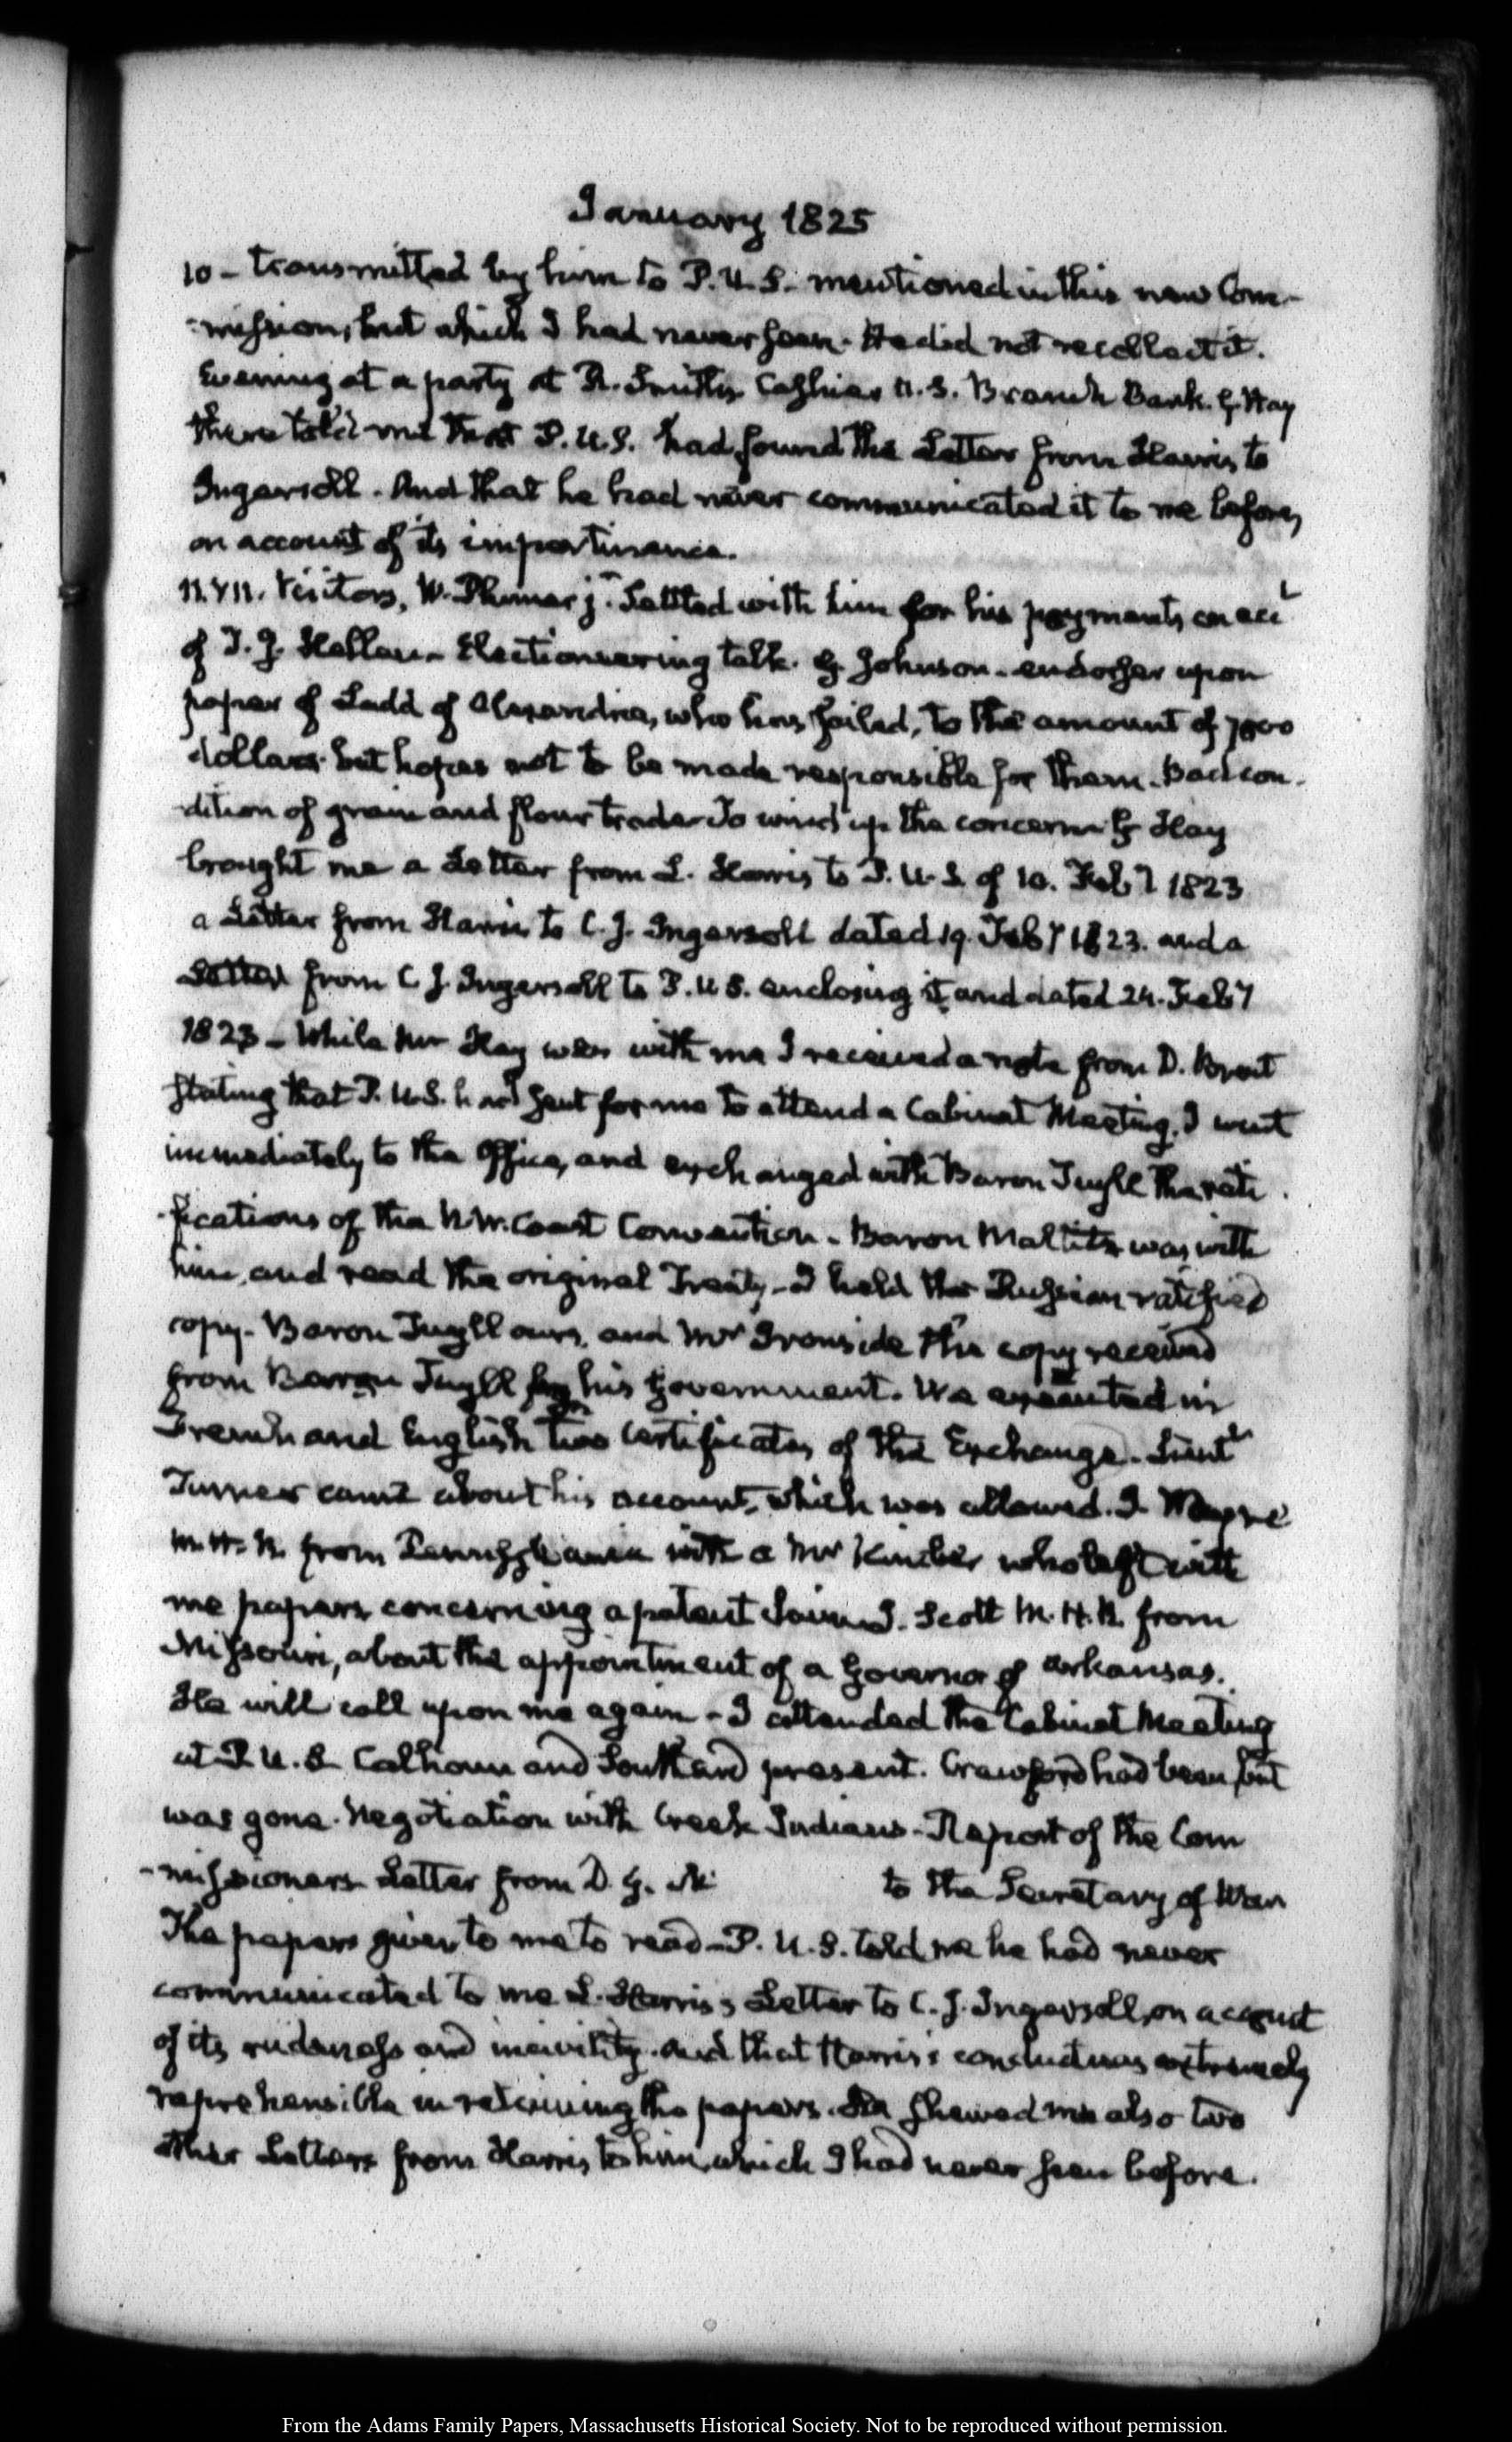 January 1825
10 - transmitted by him to P.U.S. mentioned in this new Com-
-mission, but which I had never seen. He did not recollect it.
Evening at a party at R. Smith's Cashier U.S. Branch Bank. G. Hay
there told me that P.U.S. had found the Letter from Harris to
Ingersoll. And that he had never communicated it to me before,
on account of its impertinence.
11. VII. Visitors, W. Plumer jr. Settled with him for his payments on acct
of T. J. Hellen. Electioneering talk. G. Johnson. endorser upon
paper of Ladd of Alexandria, who has failed, to the amount of 7000
dollars but hopes not to be made responsible for them. Bad con-
dition of grain and flour trade. To wind up the concern. G Hay
brought me a Letter from L. Harris to P.U.S. of 10. Feby 1823
a Letter from Harris to C. J. Ingersoll dated 19. Feby 1823. and a
Letter from C J. Ingersoll to P.U.S. enclosing it and dated 24. Feby
1823 - While Mr Hay was with me I received a note from D. Brent
stating that P.U.S. had sent for me to attend a Cabinet Meeting. I went
immediately to the Office, and exchanged with Baron Tuyll the rati-
-fications of the N.W. Coast Convention. Baron Maltitz was with
him, and read the original Treaty - I held the Russian ratified
copy. Baron Tuyll ours, and Mr Ironside the copy received
from Baron Tuyll his Government. We executed in
French and English two Certificates of the Exchange. Lieutt
Turner came about his account, which was allowed. I. Wayne
M.H.R. from Pennsylvania with a Mr Kimber who left with
me papers concerning a patent Claim J. Scott M.H.R. from
Missouri, about the appointment of a Governor of Arkansas.
He will call upon me again - I attended the Cabinet Meeting
at P.U.S. Calhoun and Southard present. Crawford had been, but
was gone. Negotiation with Creek Indians - Report of the Com
-missioners Letter from D. G. M to the Secretary of War
The papers given to me to read - P.U.S. told me he had never
communicated to me L. Harris's Letter to C. J. Ingersoll, on account
of its rudeness and incivility. And that Harris's conduct was extremely
reprehensible in retaining the papers. He shewed me also two
other Letters from Harris to him, which I had never seen before.
From the Adams Family Papers, Massachusetts Historical Society. Not to be reproduced without permission.